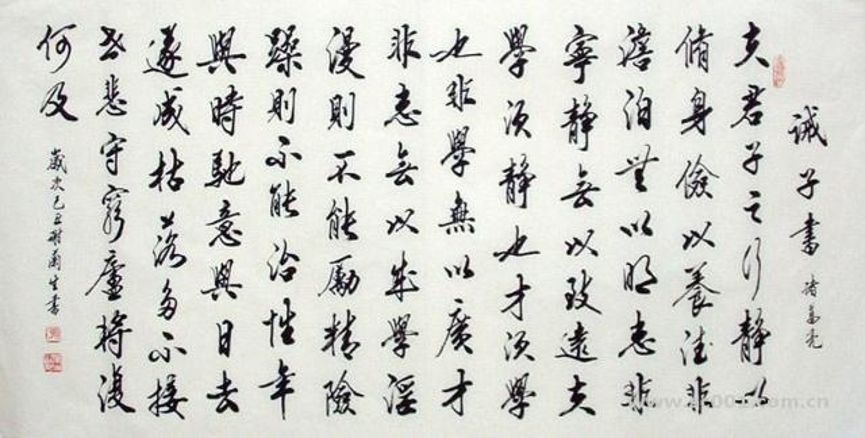 誡子書 諸葛亮
夫君子之行靜以
脩身儉以養德非
澹泊無以明志非
寧靜無以致遠夫
學須靜也才須學
也非學無以廣才
非志無以成學淫
漫則不能勵精險
躁則不能治性年
與時馳意與日去
遂成枯落多不接
世悲守窮廬將復
何及
歲次己丑 書